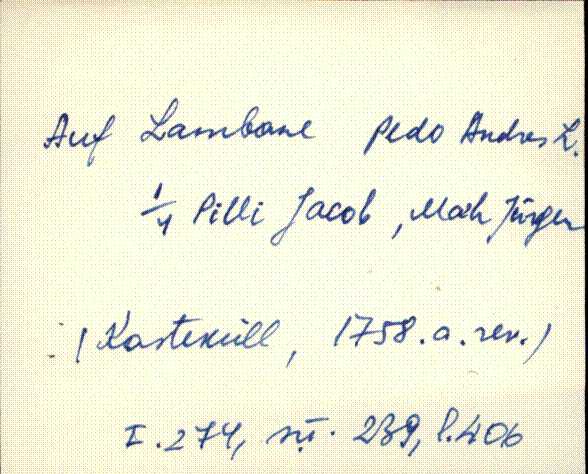 Auf Lambane Pedo Andres L.
1/4 Pilli Jacob, Mäh Jürgen
(Kasteküll, 1758.a.rev.)
I.274, nü. 239, l.406